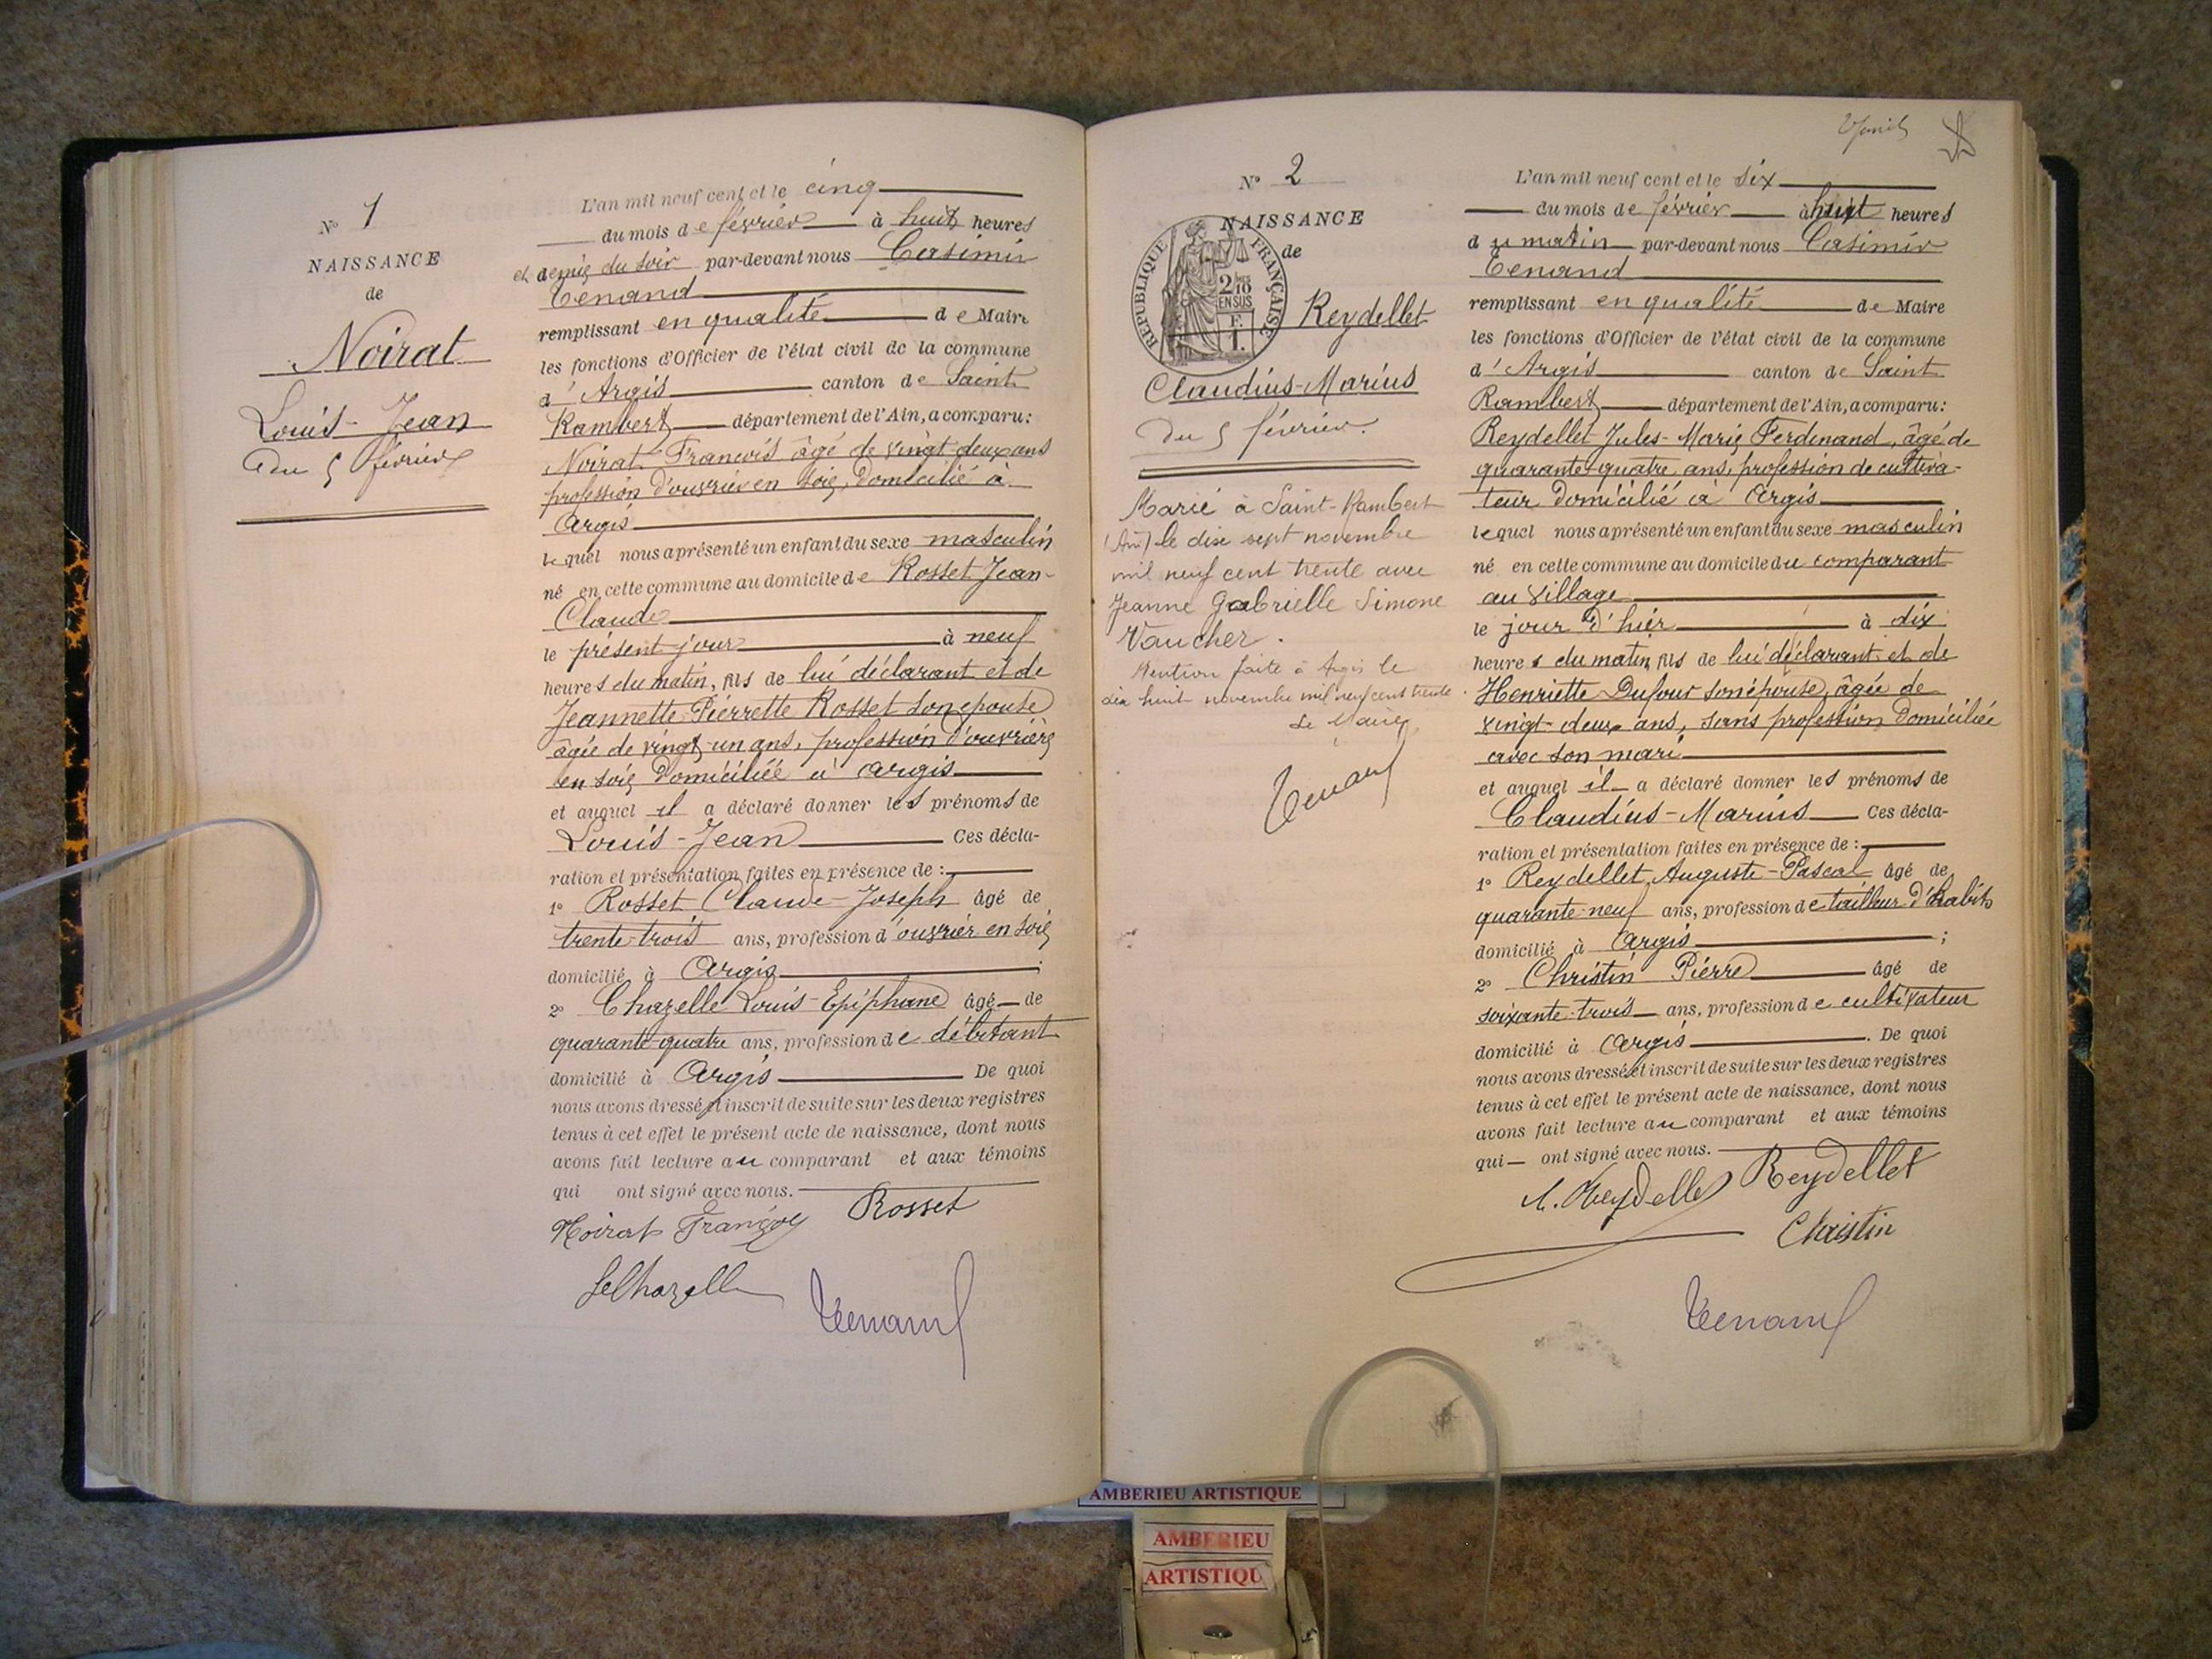 N° 1
NAISSANCE
de
Noirat
Louis-Jean
du 5 février
L'an mil neuf cent et le cinq
du mois de février à huit heures
et demie du soir par-devant nous Casimir
Tenand
remplissant en qualité de Maire
les fonctions d'Officier de l'état civil de la commune
d'Argis canton de Saint
Rambert département de l'Ain, a comparu:
Noirat François âgé de vingt-deux ans
profession d'ouvrier en soie, domicilié à
Argis
lequel nous a présenté un enfant du sexe masculin
né en cette commune au domicile de Rosset Jean-
Claude
le présent jour à neuf
heures du matin, fils de lui déclarant et de
Jeannette-Pierrette Rosset son épouse
âgée de vingt-un ans, profession d'ouvrière
en soie domiciliée à Argis
et auquel il a déclaré donner les prénoms de
Louis-Jean Ces décla-
ration et présentation faites en présence de :
1° Rosset Claude-Joseph âgé de
trente-trois ans, profession d'ouvrier en soie
domicilié à Argis ;
2° Chazelle Louis-Epiphane âgé de
quarante-quatre ans, profession de débitant
domicilié à Argis De quoi
nous avons dressé et inscrit de suite sur les deux registres
tenus à cet effet le présent acte de naissance, dont nous
avons fait lecture au comparant et aux témoins
qui ont signé avec nous.
Noirat François Rosset
Chazelle Tenand
N° 2
NAISSANCE
de
REPUBLIQUE FRANÇAISE
2/10
EN SUS
F.
1.
Reydellet
Claudius-Marius
du 5 février.
Marié à Saint-Rambert
(Ain) le dix sept novembre
mil neuf cent trente avec
Jeanne Gabrielle Simone
Vaucher.
Mention faite à Argis le
dix huit novembre mil neuf cent trente.
Le Maire
Tenand
L'an mil neuf cent et le six
du mois de février à huit heures
du matin par-devant nous Casimir
Tenand
remplissant en qualité de Maire
les fonctions d'Officier de l'état civil de la commune
d'Argis canton de Saint
Rambert département de l'Ain, a comparu:
Reydellet Jules-Marie Ferdinand, âgé de
quarante-quatre ans, profession de cultiva-
teur domicilié à Argis
lequel nous a présenté un enfant du sexe masculin
né en cette commune au domicile du comparant
au village
le jour d'hier à dix
heures du matin, fils de lui déclarant et de
Henriette Dufour son épouse, âgée de
vingt-deux ans, sans profession domiciliée
avec son mari
et auquel il a déclaré donner les prénoms de
Claudius-Marius Ces décla-
ration et présentation faites en présence de :
1° Reydellet Auguste-Pascal âgé de
quarante-neuf ans, profession de tailleur d'habits
domicilié à Argis ;
2° Christin Pierre âgé de
soixante-trois ans, profession de cultivateur
domicilié à Argis . De quoi
nous avons dressé et inscrit de suite sur les deux registres
tenus à cet effet le présent acte de naissance, dont nous
avons fait lecture au comparant et aux témoins
qui ont signé avec nous.
Reydellet Reydellet
Christin
Tenand
AMBERIEU ARTISTIQUE
AMBERIEU
ARTISTIQU